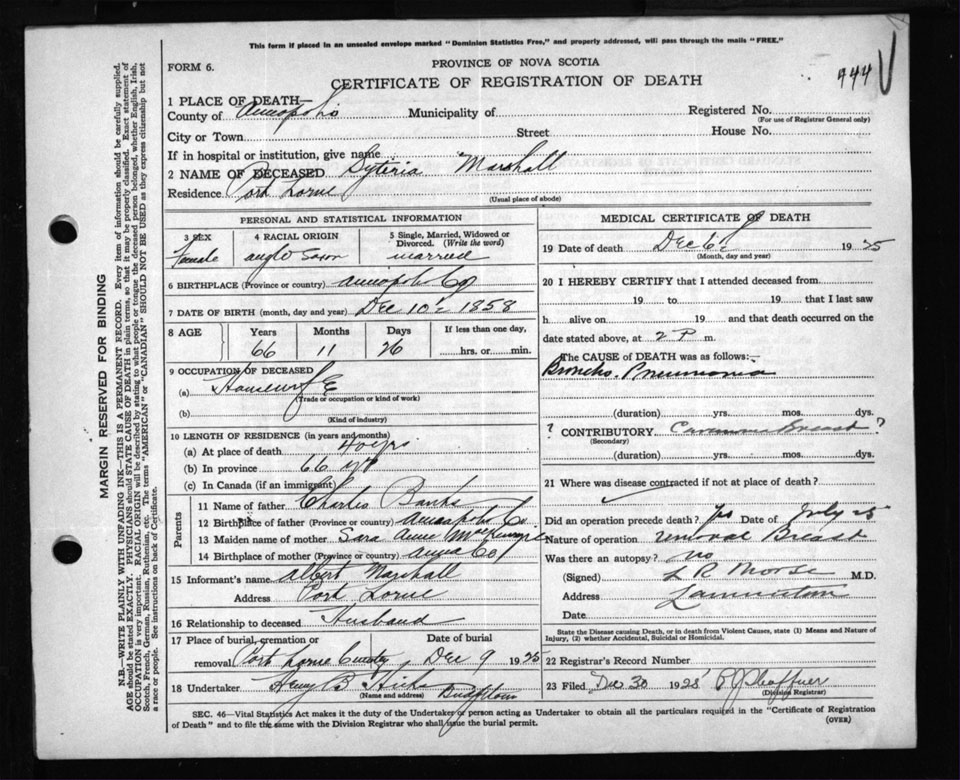 This form if placed in an unsealed envelope marked "Dominion Statistics Free," and properly addressed, will pass through the mails "FREE."
FORM 6.
PROVINCE OF NOVA SCOTIA
CERTIFICATE OF REGISTRATION OF DEATH
444
1 PLACE OF DEATH—
County of Annapolis Municipality of Registered No.
(For use of Registrar General only)
City or Town Street House No.
If in hospital or institution, give name
2 NAME OF DECEASED Syteria Marshall
Residence Port Lorne
(Usual place of abode)
PERSONAL AND STATISTICAL INFORMATION
3 SEX 4 RACIAL ORIGIN 5 Single, Married, Widowed or Divorced. (Write the word)
Female anglo Saxon married
6 BIRTHPLACE (Province or country) Annapolis Co
7 DATE OF BIRTH (month, day and year) Dec 10 1858
8 AGE Years Months Days If less than one day,
66 11 26 hrs. or min.
9 OCCUPATION OF DECEASED
(a) Housewife
(Trade or occupation or kind of work)
(b)
(Kind of industry)
10 LENGTH OF RESIDENCE (in years and months)
(a) At place of death 40 yrs
(b) In province 66 yrs
(c) In Canada (if an immigrant)
Parents
11 Name of father Charles Banks
12 Birthplace of father (Province or country) Annapolis Co
13 Maiden name of mother Sara Annie
14 Birthplace of mother (Province or country) Anna Co
15 Informant's name Albert Marshall
Address Port Lorne
16 Relationship to deceased Husband
17 Place of burial, cremation or removal Port Lorne Date of burial Dec 9 1925
18 Undertaker Henry B Hicks
(Name and address)
MEDICAL CERTIFICATE OF DEATH
19 Date of death Dec 6 1925
(Month, day and year)
20 I HEREBY CERTIFY that I attended deceased from
19 to 19 that I last saw
h alive on 19 and that death occurred on the
date stated above, at 2 P m.
The CAUSE of DEATH was as follows:
Broncho. Pneumonia
(duration) yrs. mos. dys.
? CONTRIBUTORY Carcinoma Breast ?
(Secondary)
(duration) yrs. mos. dys.
21 Where was disease contracted if not at place of death?
Did an operation precede death? Yes Date of July 25
Nature of operation removal Breast
Was there an autopsy? no
(Signed) L R Morse M.D.
Address Lawrencetown
Date
State the Disease causing Death, or in death from Violent Causes, state (1) Means and Nature of Injury, (2) whether Accidental, Suicidal or Homicidal.
22 Registrar's Record Number
23 Filed Dec 30 1925
(Division Registrar)
SEC. 46—Vital Statistics Act makes it the duty of the Undertaker or person acting as Undertaker to obtain all the particulars required in the "Certificate of Registration
of Death" and to file the same with the Division Registrar who shall issue the burial permit. (OVER)
MARGIN RESERVED FOR BINDING
N.B.—WRITE PLAINLY WITH UNFADING INK—THIS IS A PERMANENT RECORD. Every item of information should be carefully supplied.
AGE should be stated EXACTLY. PHYSICIANS should STATE CAUSE OF DEATH in plain terms, so that it may be properly classified. Exact statement of
OCCUPATION is very important. RACIAL ORIGIN will be described by stating to what people or tongue the deceased person belonged, whether English, Irish,
Scotch, French, German, Russian, Ruthenian, etc. The terms "AMERICAN" or "CANADIAN" SHOULD NOT BE USED as they express citizenship but not
a race or people. See instructions on back of Certificate.